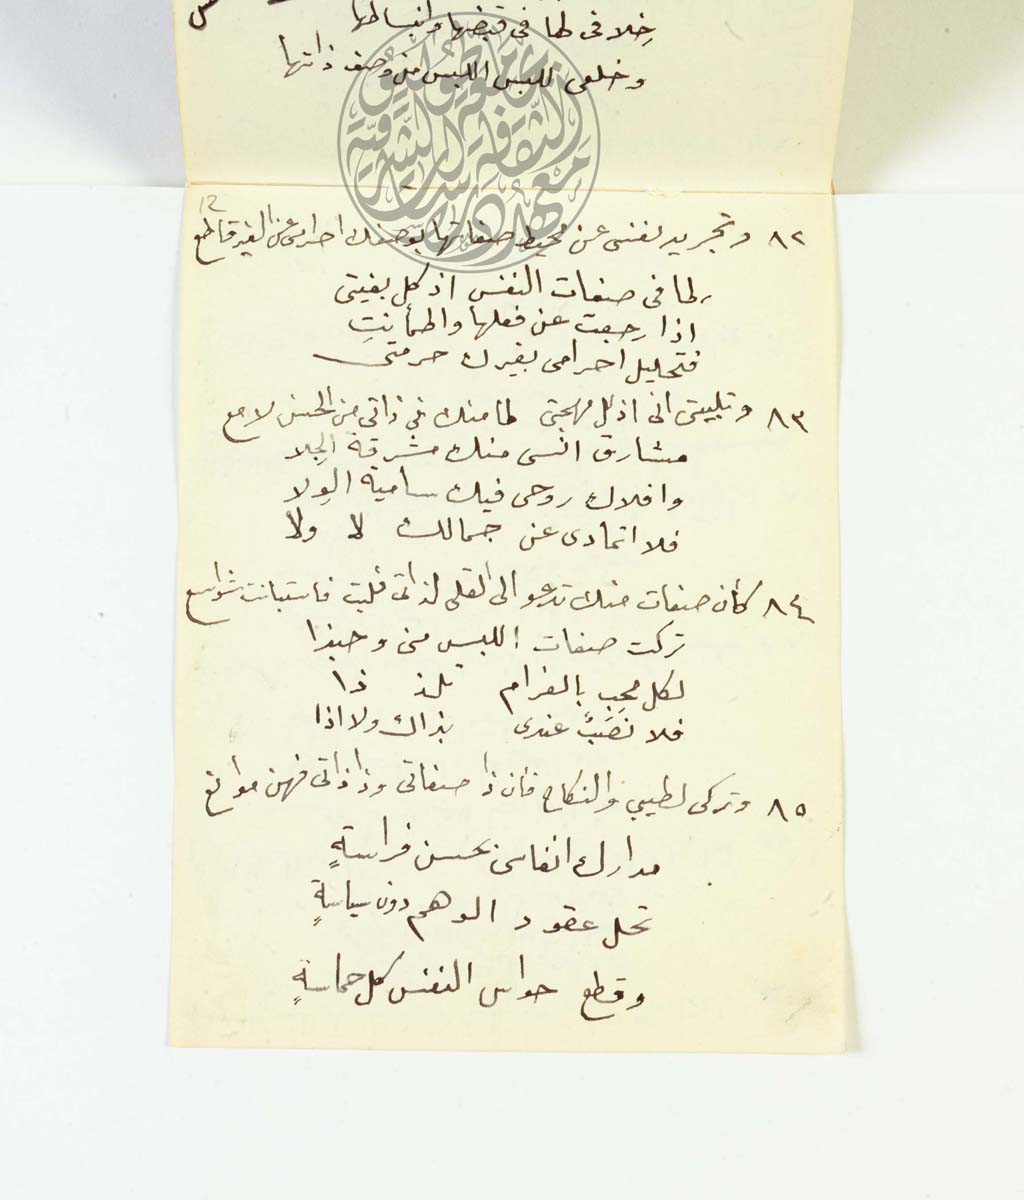 خلافى لها فى قبضها وانبساطها
وخلعى للبس اللبس من وصف ذاتها
12
٨٢ وتجريد نفسى عن محيط صفاتها بوصفك احرامى عن الغير قاطع
لها فى صفات النفس اذ كل بغيتى
اذا رجعت عن فعلها واطمأنتِ
فتحليل احرامى بغيرك حرمتى
٨٣ وتلبيتى انى اذلل مهجتى لما منك فى ذاتى من الحسن لامع
مشارق انسى منك مشرقة الجلا
وافلاك روحى فيك سامية الوِلا
فلا اتمادى عن جمالك لا ولا
٨٤ كأن صفات منك تدعو الى العلى لذاتى فلبت فاستبانت شواسع
تركت صفات اللبس منى وحبذا
لكل محبٍ بالغرام تلذذا
فلا نصَبٌ عندى بذاك ولا اذا
٨٥ وتركى لطيبى والنكاح فأن ذا صفاتى وذا ذاتى فهن موانع
مدارك انفاسى بحسن فراسةٍ
تحل عقود الوهم دون سياسةٍ
وقطع حواس النفس كل حماسةٍ